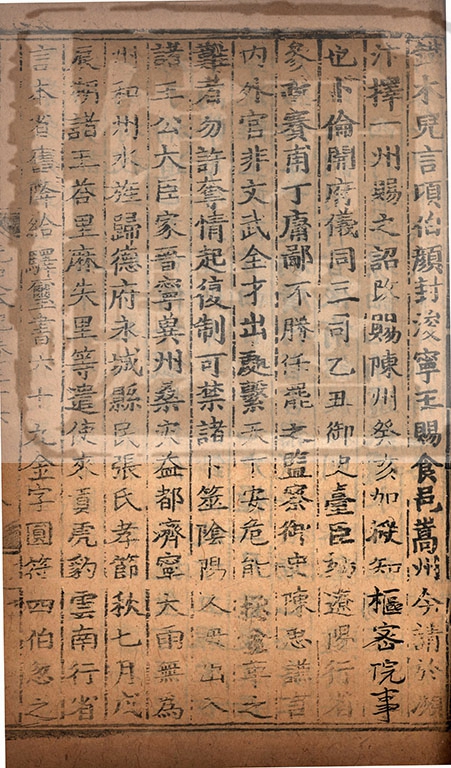 鐵木兒言項伯顏封浚寧王賜食邑嵩州今請於
汴擇一州賜之詔改賜陳州癸亥加授知樞密院事
也卜倫開府儀同三司乙丑御史臺臣劾遼陽行省
參政賽甫丁庸鄙不勝任罷之監察御史陳思謙言
内外官非文武全才出處繫天下安危能拯
難者勿許奪情起復制可禁諸卜筮陰陽人毋出入
諸王公大臣家晉寧冀州桑灾益都濟寧大雨無為
州和州水旌歸德府永城縣民張氏孝節秋七月戊
辰朔諸王荅里麻失里等遣使來貢虎豹雲南行省
言本省舊降給驛璽書六十九金字圓符四伯忽之